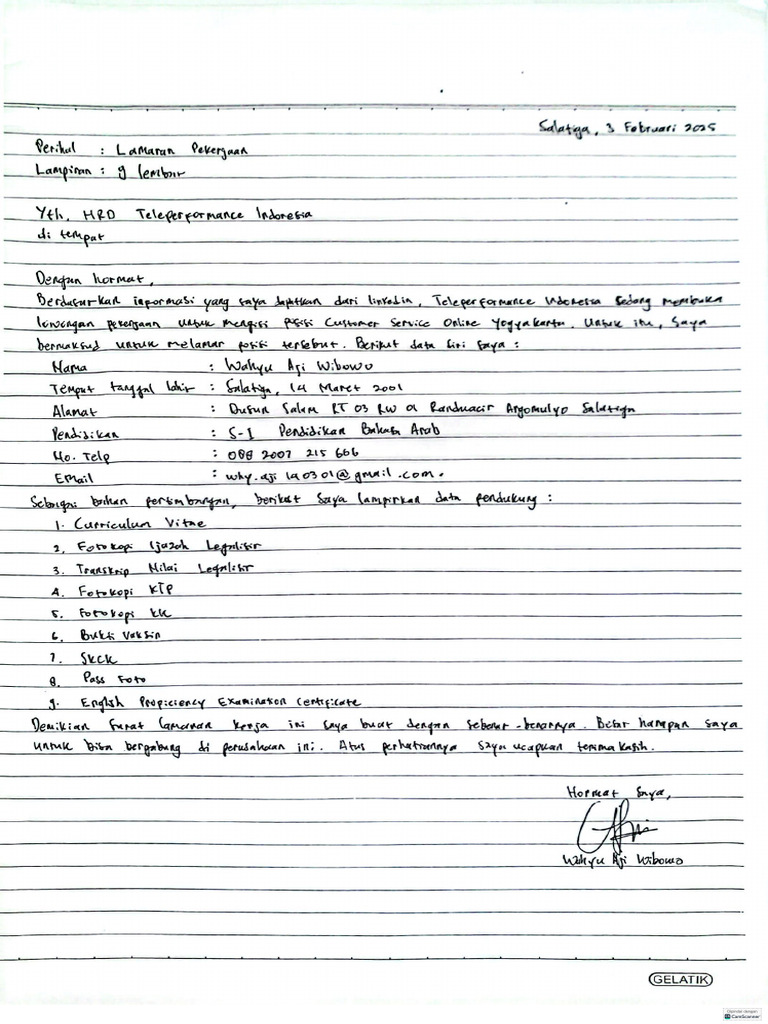 Salatiga, 3 Februari 2025
Perihal : Lamaran Pekerjaan
Lampiran : 9 lembar
Yth. HRD Teleperformance Indonesia
di tempat
Dengan hormat,
Berdasarkan informasi yang saya dapatkan dari linkedin, Teleperformance Indonesia sedang membuka
lowongan pekerjaan untuk mengisi posisi Customer Service Online Yogyakarta. Untuk itu, saya
bermaksud untuk melamar posisi tersebut. Berikut data diri saya :
Nama : Wahyu Aji Wibowo
Tempat tanggal lahir : Salatiga, 14 Maret 2001
Alamat : Dusun Salam RT 03 RW 01 Randuacir Argomulyo Salatiga
Pendidikan : S-1 Pendidikan Bahasa Arab
No. Telp : 088 2007 215 666
Email : why.aji140301@gmail.com.
Sebagai bahan pertimbangan, berikut saya lampirkan data pendukung :
1. Curriculum Vitae
2. Fotokopi Ijazah Legalisir
3. Transkrip Nilai Legalisir
4. Fotokopi KTP
5. Fotokopi KK
6. Bukti Vaksin
7. SKCK
8. Pass Foto
9. English Proficiency Examination Certificate
Demikian surat lamaran kerja ini saya buat dengan sebenar-benarnya. Besar harapan saya
untuk bisa bergabung di perusahaan ini. Atas perhatiannya saya ucapkan terima kasih.
Hormat Saya,
Wahyu Aji Wibowo
GELATIK
CamScanner